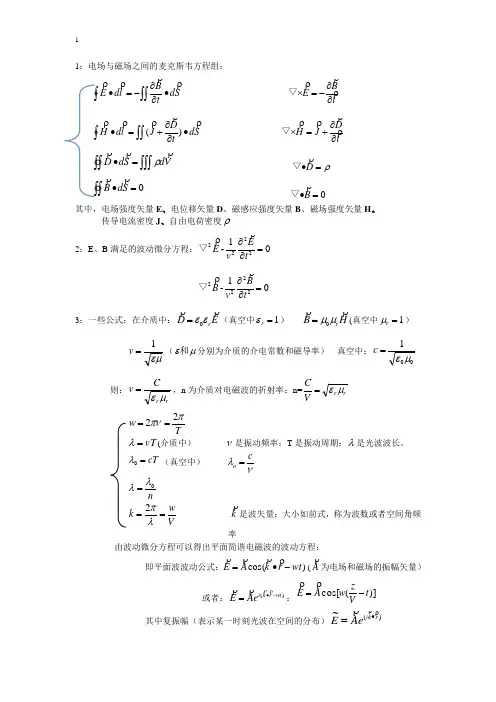 1
1：电场与磁场之间的麦克斯韦方程组：
∮E•dl=-∬∂B/∂t•dS ▽×E=-∂B/∂t
∮H•dl=∬(J+∂D/∂t)•dS ▽×H=J+∂D/∂t
∯D•dS=∭ρdV ▽•D=ρ
∯B•dS=0 ▽•B=0
其中，电场强度矢量E、电位移矢量D、磁感应强度矢量B、磁场强度矢量H。
传导电流密度J、自由电荷密度ρ
2：E、B满足的波动微分方程：▽²E-1/v² ∂²E/∂t²=0
▽²B-1/v² ∂²B/∂t²=0
3：一些公式：在介质中：D=ε₀εᵣE（真空中εᵣ=1） B=μ₀μᵣH(真空中μᵣ=1）
v=1/√εμ（ε和μ分别为介质的介电常数和磁导率） 真空中：c=1/√ε₀μ₀
则：v=C/√εᵣμᵣ，n为介质对电磁波的折射率：n=C/V=√εᵣμᵣ
w=2πν=2π/T
λ=vT(介质中） ν是振动频率；T是振动周期；λ是光波波长。
λ₀=cT（真空中） λₒ=c/ν
λ=λ₀/n
k=2π/λ=w/V k是波失量；大小如前式，称为波数或者空间角频
率
由波动微分方程可以得出平面简谐电磁波的波动方程：
即平面波波动公式：E=Acos(k•r-wt)（A为电场和磁场的振幅矢量）
或者：E=Ae^i(k•r-wt)；E=Acos[w(z/V-t)]
其中复振幅（表示某一时刻光波在空间的分布）E=Ae^(ik•r)